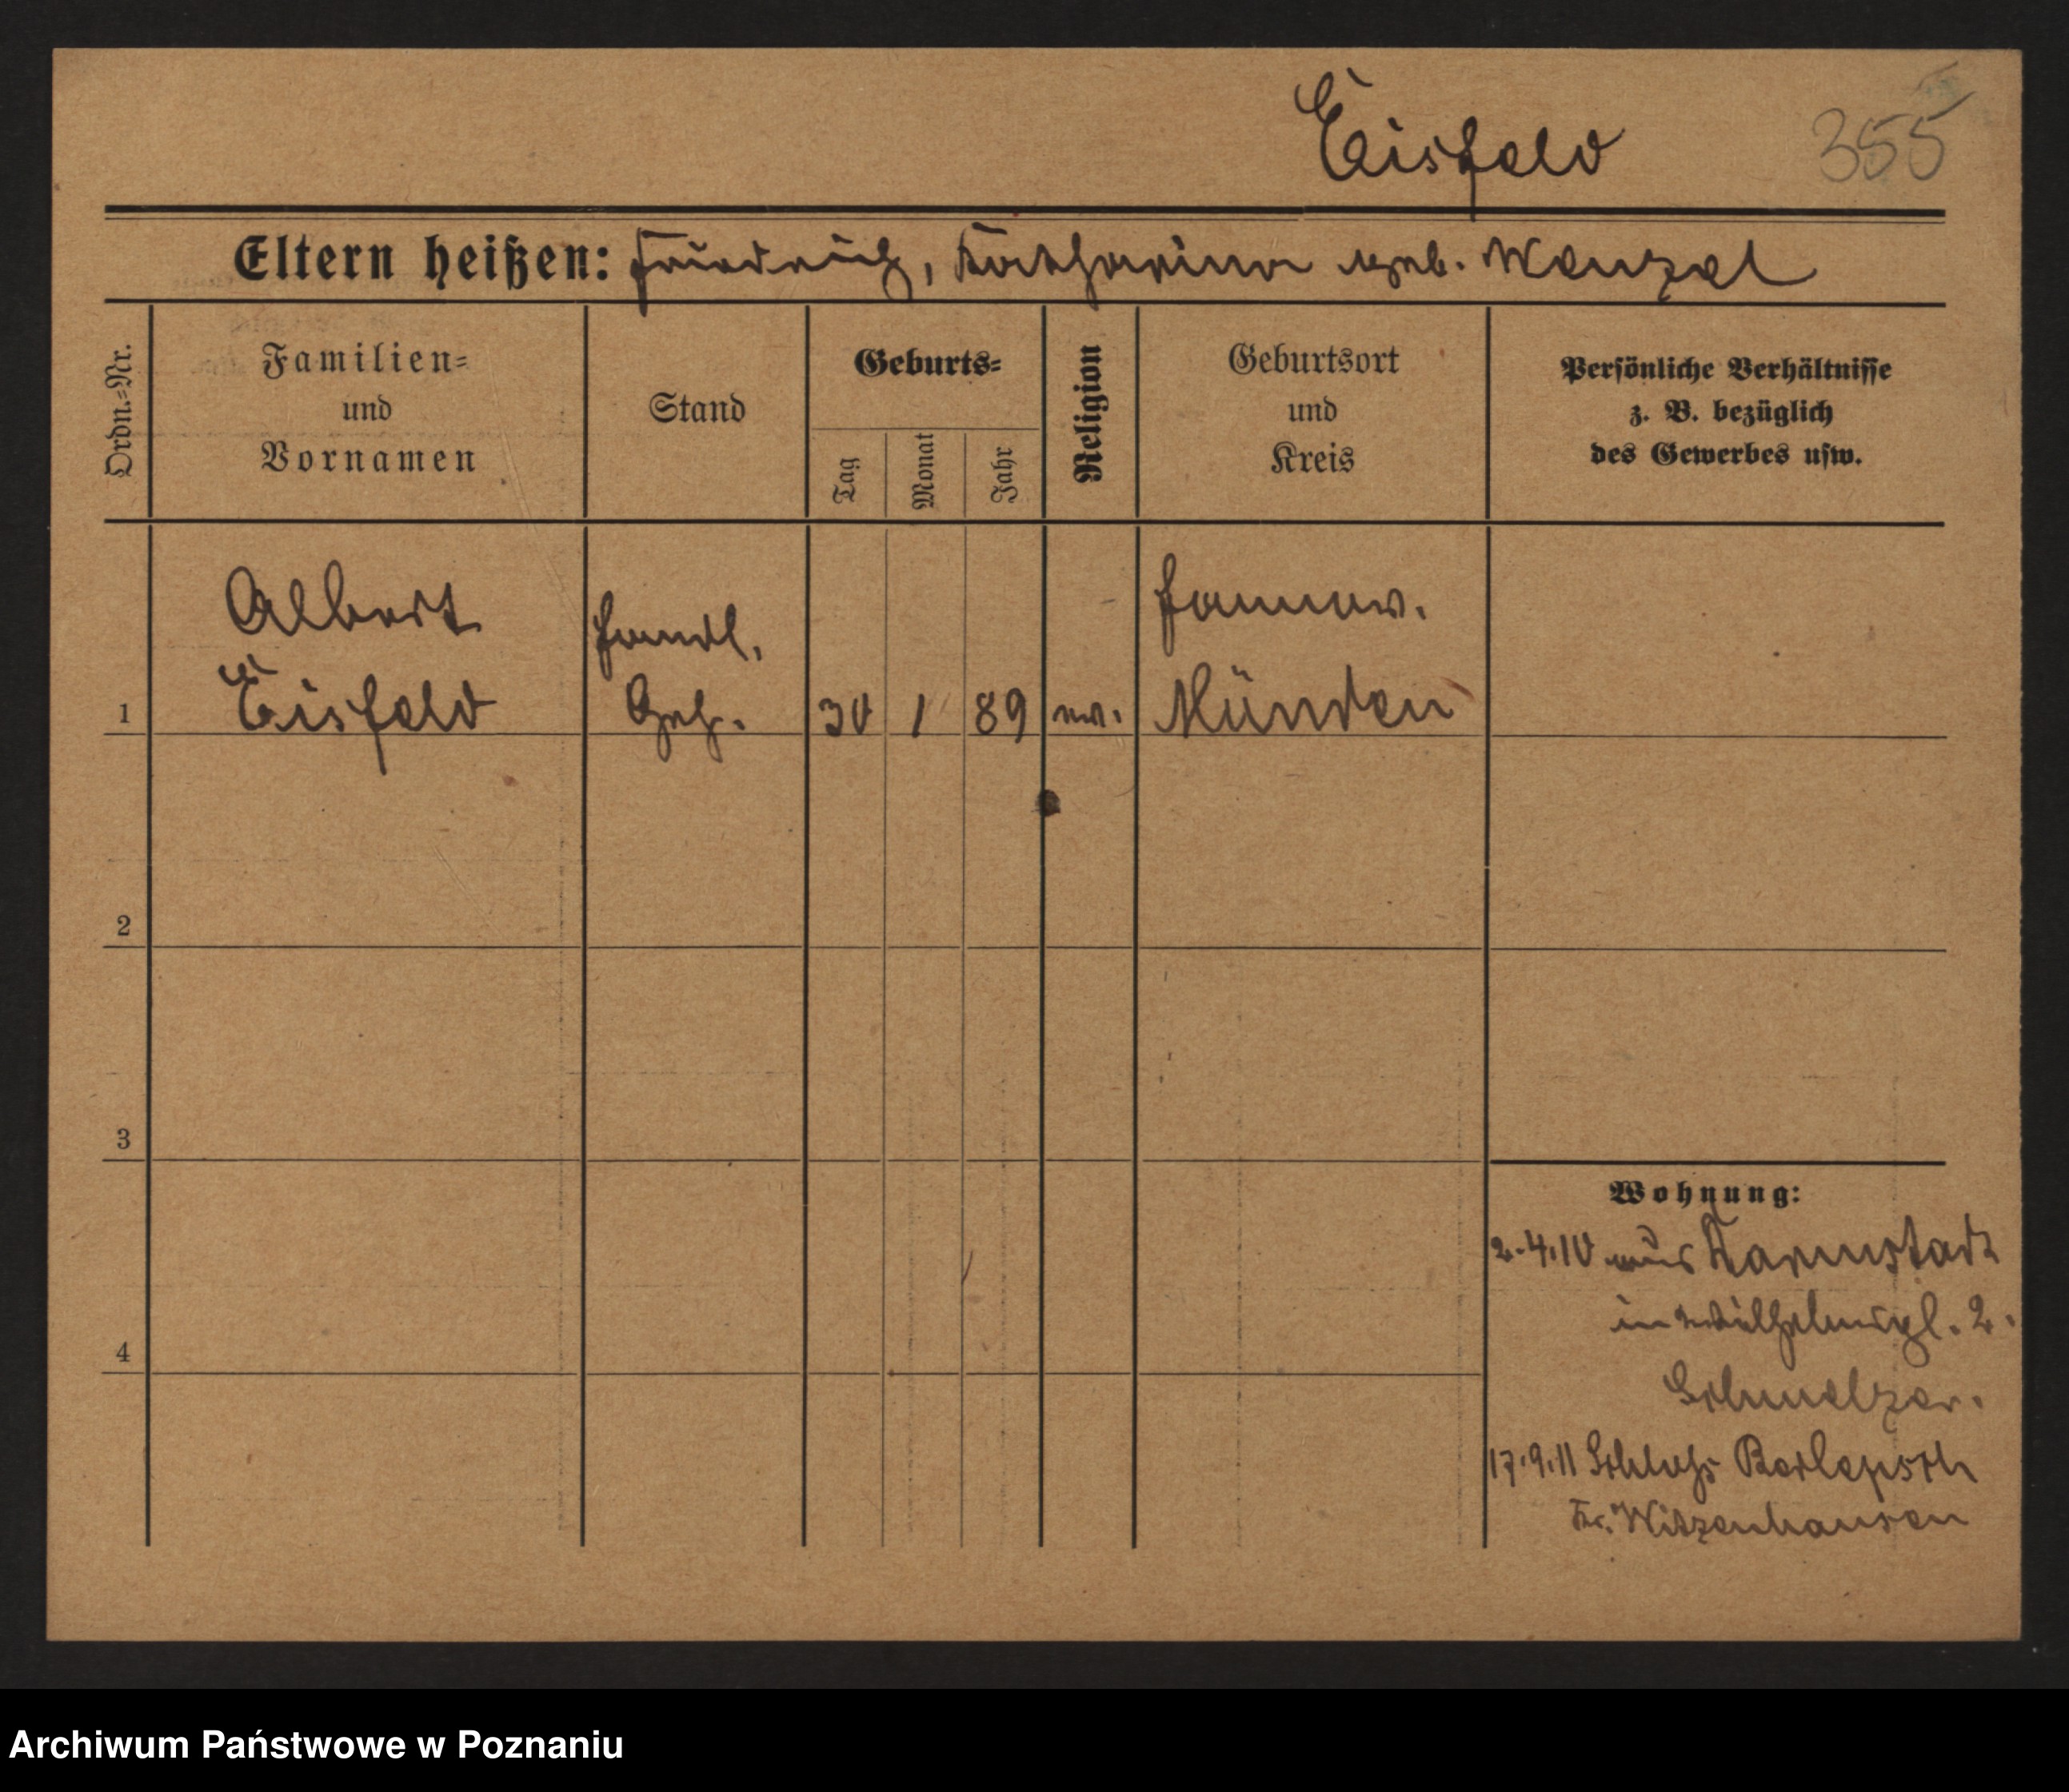 Eisfeld 355
Eltern heißen: Friedrich, Katharina geb. Wenzel
Ordn.-Nr.
Familien-
und
Vornamen
Stand
Geburts-
Tag
Monat
Jahr
Religion
Geburtsort
und
Kreis
Persönliche Verhältnisse
z. B. bezüglich
des Gewerbes usw.
Albert
Handl.
Hannov.
1 Eisfeld Geh. 30 1 89 ev. Münden
2
3
4
Wohnung:
2.4.10 aus Darmstadt
in Wilhelmspl. 2.
Schmelzer.
17.9.11 Schloß Berlepsch
Kr. Witzenhausen
Archiwum Państwowe w Poznaniu